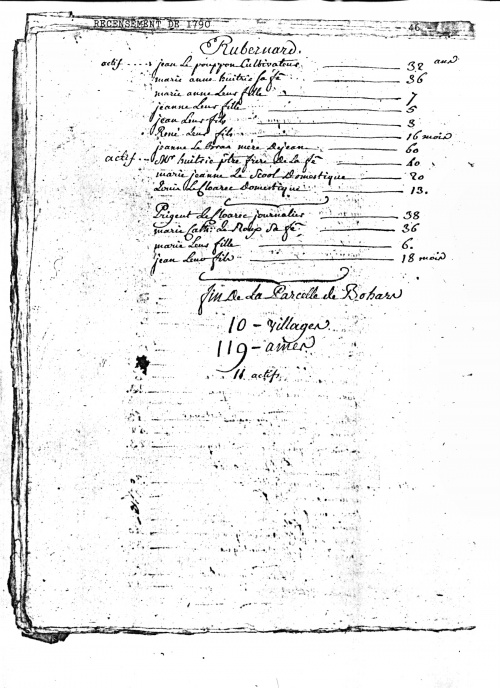 RECENSEMENT DE 1790 46
Rubernard.
actif .... jean Le pouppon Cultivateur 32 ans
marie anne huitric sa fe 36
marie anne Leur fille 7
jeanne Leur fille 5
jean Leur fils 3
René Leur fils 16 mois
jeanne Le mere de jean 60
actif .... Mr huitric ptre frere de La fe 40
marie jeanne Le Scool Domestique 20
Louis Le floarec Domestique 13.
Prigent Le floarec journalier 38
marie Cathe Le Roux Sa fe 36
marie Leur fille 6.
jean Leur fils 18 mois
fin De La Parcelle de Bohars
10 - villages
119 - ames
11 actifs